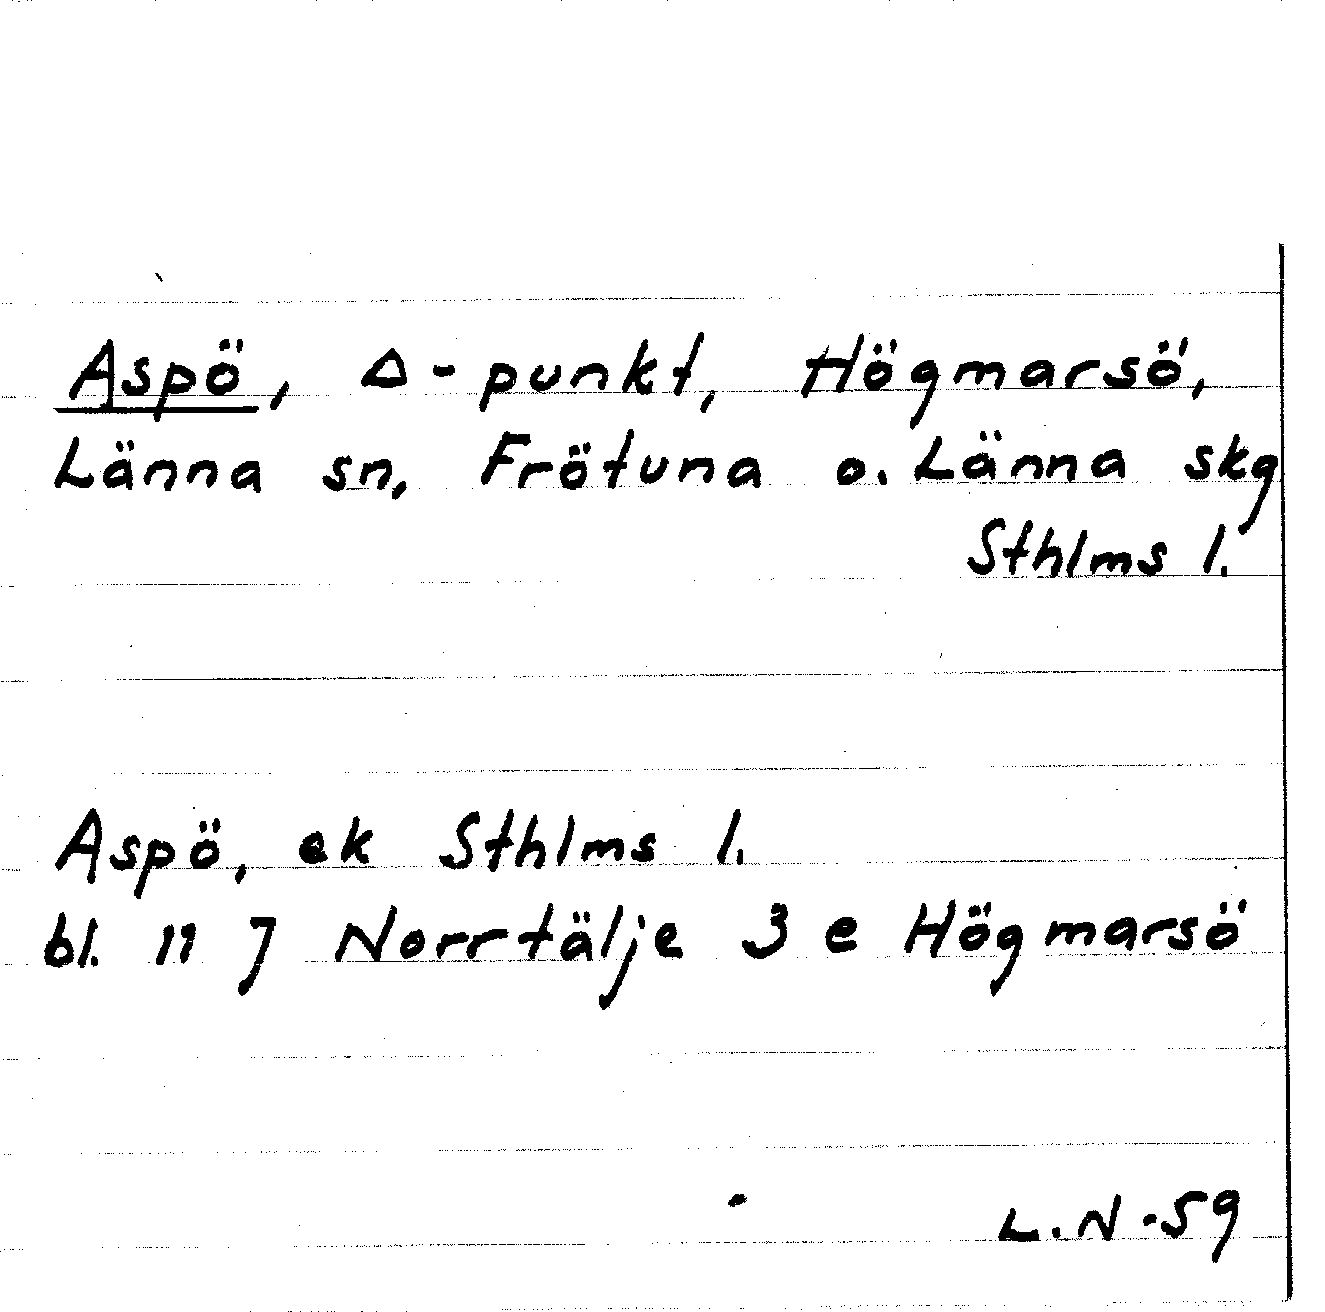 Aspö, Δ-punkt, Högmarsö,
Länna sn, Frötuna o. Länna skg
Sthlms l.
Aspö, ek Sthlms l.
bl. 11 J Norrtälje 3 e Högmarsö
L.N -59